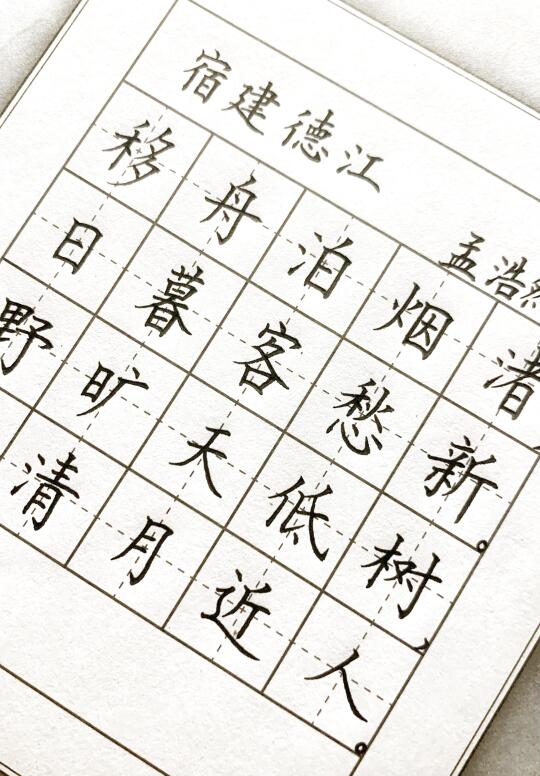 宿建德江
孟浩然
移舟泊烟渚，
日暮客愁新。
野旷天低树，
清月近人。